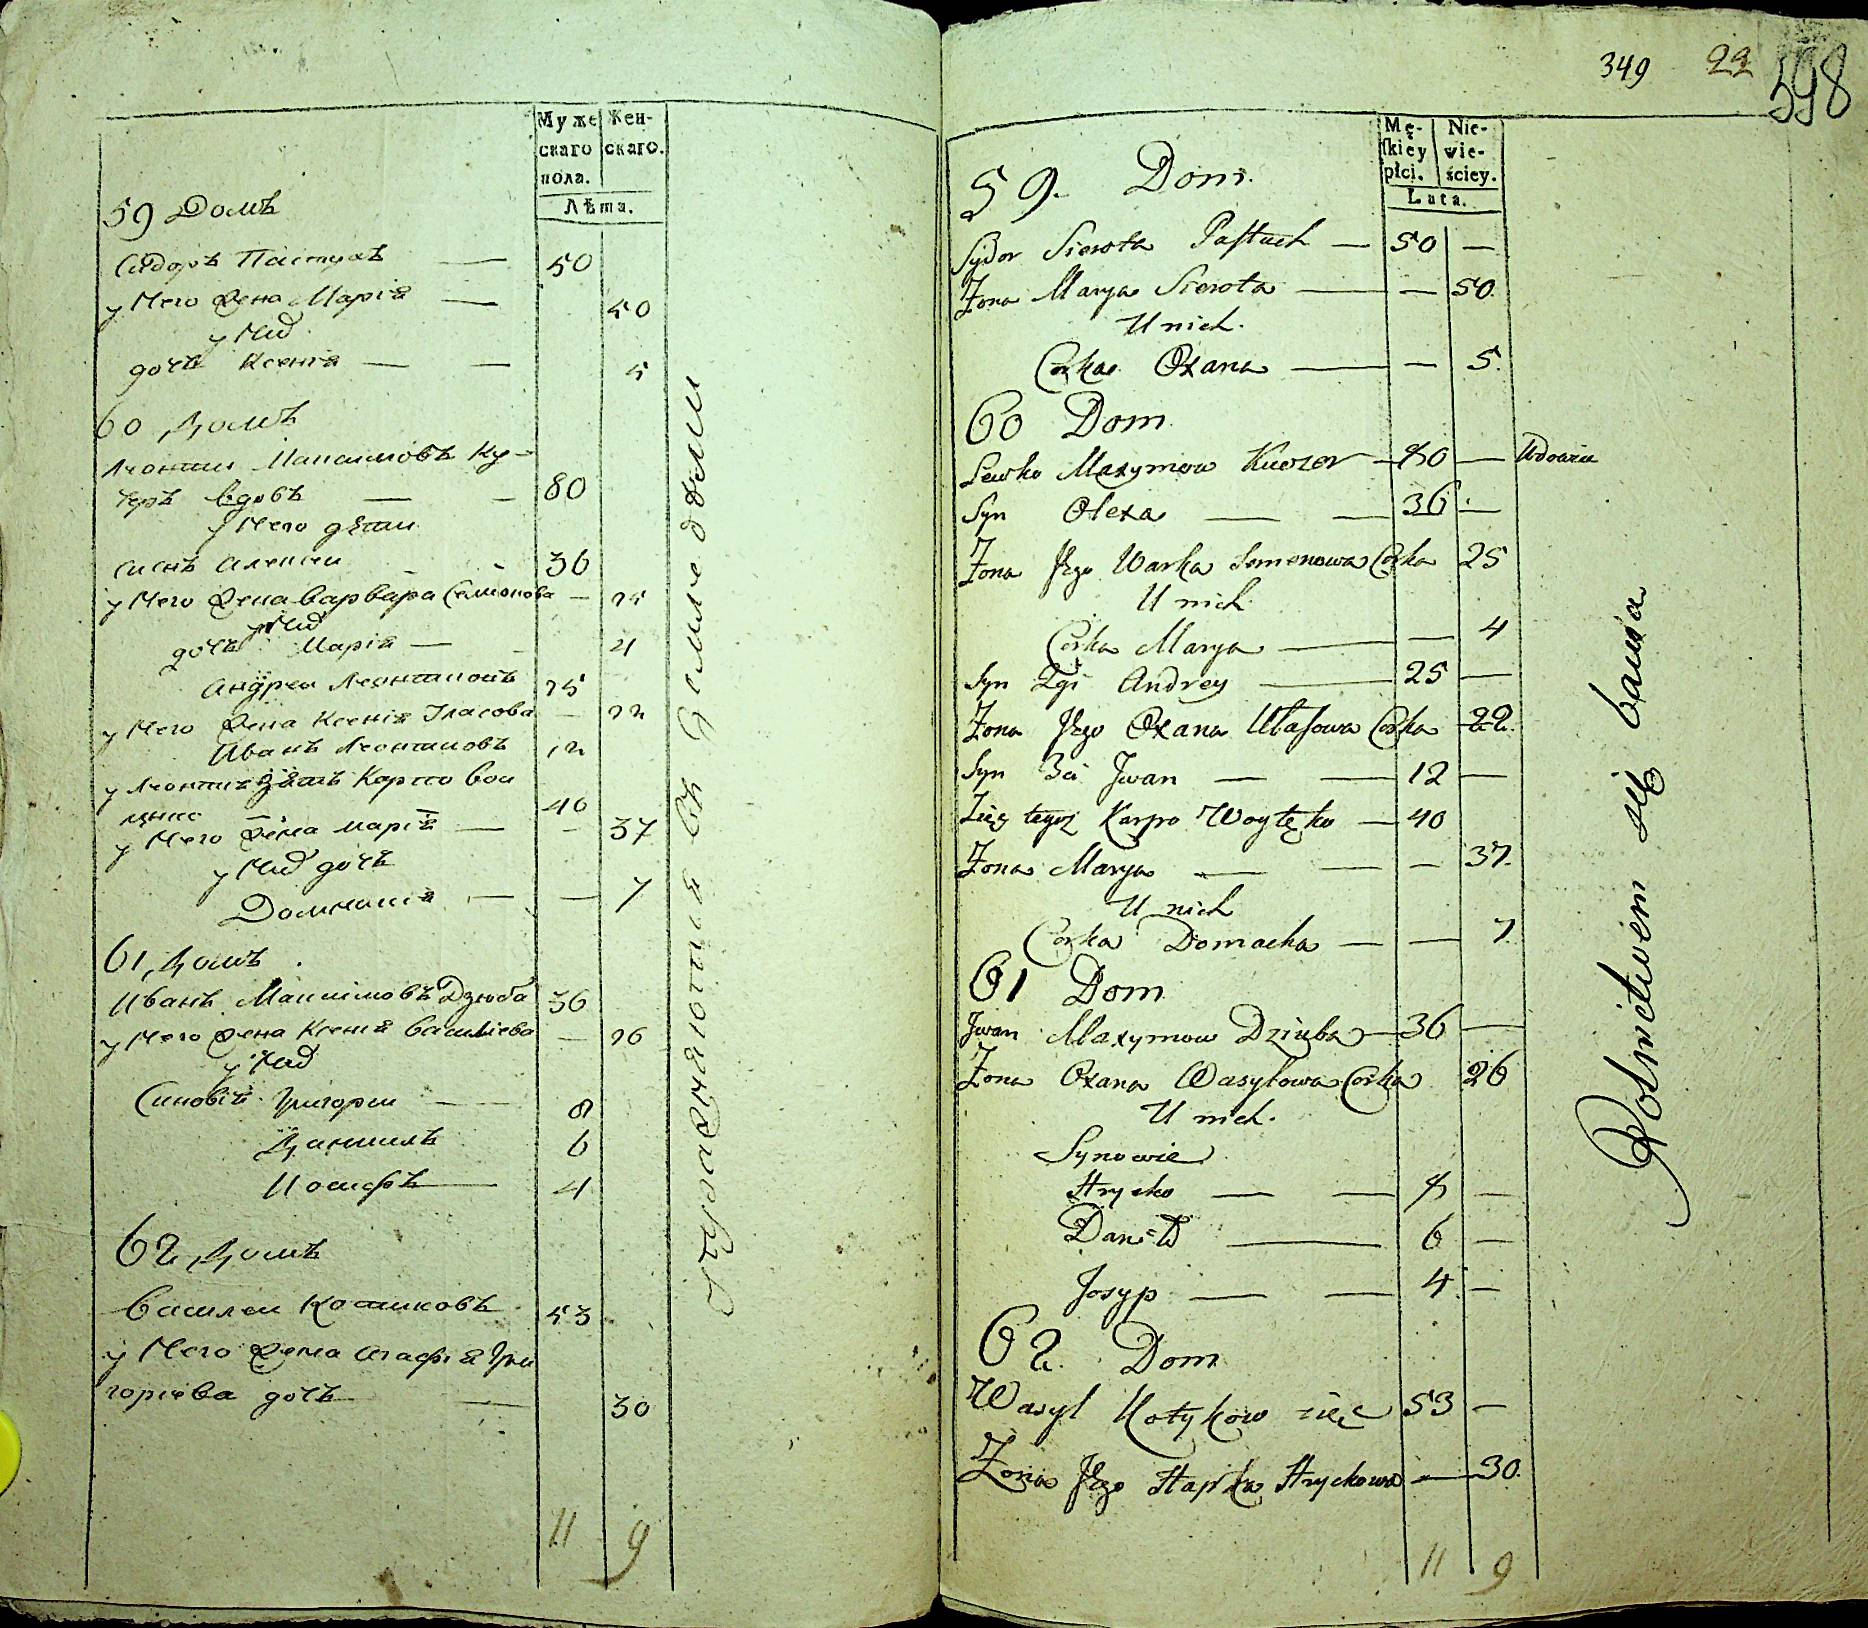 Муже Жен-
скаго скаго.
пола.
Лѣта.
59 Домъ
Сидоръ Пастухъ — 50
у Него Жена Марія — 50
у Них
дочъ Ксенія — — 5
60 Домъ
Леонтии Максимовъ Ку-
черъ вдовъ — — 80
у Него дѣти
синъ Алексеи 36
у Него Жена Варвара Семіонова — 25
у Них
дочъ Марія — 4
Андреи Леонтиовъ 25
у Него Жена Ксенія Власова — 22
Иванъ Леонтиовъ 12
у Леонтия Зять Карпо Вои
40
у Него Жена Марія — — 37
у Них дочъ
Домникия — — 7
61 Домъ
Иванъ Максимовъ Дзюба 36
у Него Жена Ксенія Василіева — 26
у Них
Синовія Григореи — 8
Даниилъ 6
Иосифъ — 4
62 Домъ
Василеи Котиковъ 53
у Него Жена Агафія Гри
горіева дочъ — 30
11 9
349 22 598
Mę- Nie-
ſkiey wie-
płci. ściey.
Lata.
59. Dom.
Sydor Sierota Paſtuch — 50 —
Żona Marya Sierota — — 50.
U nich.
Corka Oxana — — 5.
60 Dom
Lewko Maxymow Kuczer — 80 — Wdowiec
Syn Olexa — — 36 —
Żona Jego Warka Semenowa Corka 25
U nich
Corka Marya — — 4
Syn 2gi Andrey — 25 —
Żona Jego Oxana Własowa Corka 22.
Syn 3ci Jwan — — 12 —
Zięć tegoż Karpo Woytęko — 40
Żona Marya — — — 37.
U nich
Corka Domacha — — 7.
61 Dom
Jwan Maxymow Dziuba — 36 —
Żona Oxana Wasylowa Corka 26
U nich.
Synowie
Hrycko — — 8 —
Daniło — 6 —
Josyp — — 4 —
62. Dom
Wasyl Kotykow zięć 53 —
Żona Jego Hapka Hryckowa — 30.
11 9
Rolnictwem się bawią